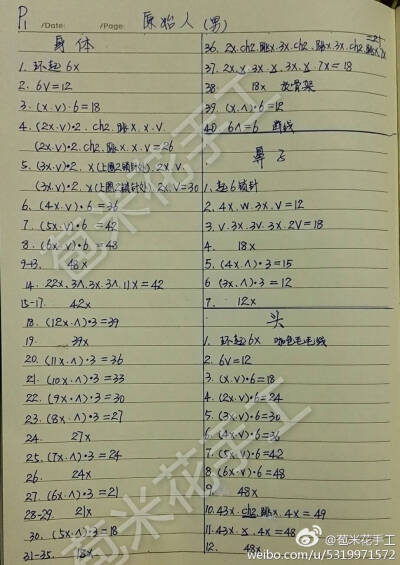 P1 /Date: /Page: 原始人(男)
身体
1. 环起6X
2. 6V=12
3. (X.V)·6=18
4. (2X.V)·2. ch2. 跳X. X. V.
(2X.V)·2. ch2. 跳X. V=26
5. (3X.V)·2. X(上圈2锁针处). 2X.V.
(3X.V)·2. X(上圈2锁针处). 2X.V=30
6. (4X.V)·6=36
7. (5X.V)·6=42
8. (6X.V)·6=48
9-13. 48X
14. 22X. 3Λ. 3X. 3Λ. 11X=42
15-17. 42X
18. (12X.Λ)·3=39
19. 39X
20. (11X.Λ)·3=36
21. (10X.Λ)·3=33
22. (9X.Λ)·3=30
23. (8X.Λ)·3=27
24. 27X
25. (7X.Λ)·3=24
26. 24X
27. (6X.Λ)·3=21
28-29. 21X
30. (5X.Λ)·3=18
31-35. 18X
36. 2X. ch2. 跳X. 3X. ch2. 跳X. 3X. ch2. 跳X. 7X
37. 2X. X. 3X. X. 3X. X. 7X=18
38. 18X 放骨架
39. (X.Λ)·6=12
40. 6Λ=6 断线
鼻子
1. 起6锁针
2. 4X. W. 3X. V=12
3. V. 3X. 3V. 3X. 2V=18
4. 18X
5. (4X.Λ)·3=15
6. (3X.Λ)·3=12
7. 12X
头
1. 环起6X 咖色毛毛线
2. 6V=12
3. (X.V)·6=18
4. (2X.V)·6=24
5. (3X.V)·6=30
6. (4X.V)·6=36
7. (5X.V)·6=42
8. (6X.V)·6=48
9. 48X
10. 43X. ch2. 跳X. 4X=49
11. 43X. X. 4X=48
12. 48X
苞米花手工
苞米花手工
@苞米花手工
weibo.com/u/5319971572